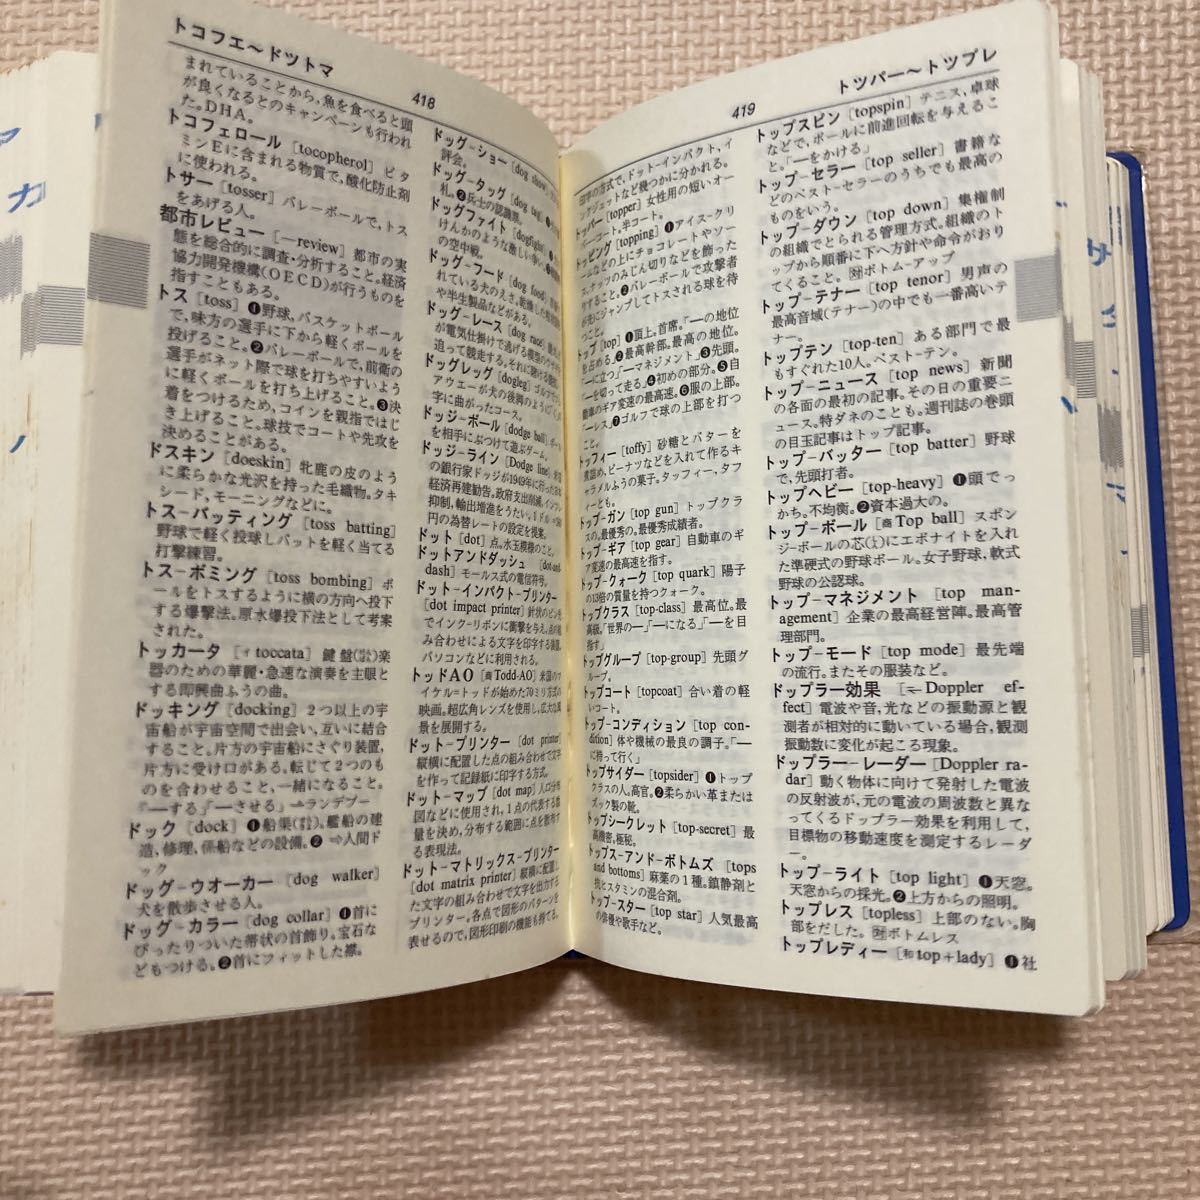 トコフエ〜ドツトマ
418
まれていることから,魚を食べると頭
が良くなるとのキャンペーンも行われ
た。DHA。
トコフェロール [tocopherol] ビタ
ミンEに含まれる物質で,酸化防止剤
に使われる。
トサー [tosser] バレーボールで,トス
をあげる人。
都市レビュー [—review] 都市の実
態を総合的に調査・分析すること。経済
協力開発機構(OECD)が行うものを
指すこともある。
トス [toss] ❶野球,バスケットボール
で,味方の選手に下から軽くボールを
投げること。❷バレーボールで,前衛の
選手がネット際で球を打ちやすいよう
に軽くボールを打ち上げること。❸決
着をつけるため,コインを親指ではじ
き上げること。球技でコートや先攻を
決めることがある。
ドスキン [doeskin] 牝鹿の皮のよう
に柔らかな光沢を持った毛織物。タキ
シード,モーニングなどに。
トス-バッティング [toss batting]
野球で軽く投球しバットを軽く当てる
打撃練習。
トス-ボミング [toss bombing] ボ
ールをトスするように横の方向へ投下
する爆撃法。原水爆投下法として考案
された。
トッカータ [ィtoccata] 鍵盤楽
器のための華麗・急速な演奏を主眼と
する即興曲ふうの曲。
ドッキング [docking] 2つ以上の宇
宙船が宇宙空間で出会い,互いに結合
すること。片方の宇宙船にさぐり装置,
片方に受け口がある。転じて2つのも
のを合わせること,一緒になること。
「—する」「—させる」→ランデブー
ドック [dock] ❶船渠,艦船の建
造,修理,係船などの設備。❷⇒人間ド
ック
ドッグ-ウオーカー [dog walker]
犬を散歩させる人。
ドッグ-カラー [dog collar] ❶首に
ぴったりついた帯状の首飾り。宝石な
どもつける。❷首にフィットした襟。
ドッグ-ショー [dog show]
評会。
ドッグ-タッグ [dog tag]
札。❷兵士の認識票。
ドッグファイト [dogfight]
けんかのような激しい争い。
の空中戦。
ドッグ-フード [dog food]
れている犬のえさ。乾燥した
や半生製品などがある。
ドッグ-レース [dog race]
が電気仕掛けで逃げる模型の
追って競走する。それに賭ける
ドッグレッグ [dogleg] ゴルフで
アウエーが犬の後脚のように
字に曲がったコース。
ドッジ-ボール [dodge ball] ボール
を相手にぶつけて遊ぶゲーム。
ドッジ-ライン [Dodge line] 米国
の銀行家ドッジが1949年に行った日本
経済再建勧告。政府支出削減,インフレ
抑制,輸出増進をうたい,1ドル=360
円の為替レートの設定を提案。
ドット [dot] 点。水玉模様のこと。
ドットアンドダッシュ [dot-and-
dash] モールス式の電信符号。
ドット-インパクト-プリンター
[dot impact printer] 針状のピンを
でインク-リボンに衝撃を与え,点の組
み合わせによる文字を印字する装置。
パソコンなどに利用される。
トッドAO [商Todd-AO] 米国の
イケル=トッドが始めた70ミリ方式の
映画。超広角レンズを使用し,広大な風
景を展開する。
ドット-プリンター [dot printer]
縦横に配置した点の組み合わせで文字
を作って記録紙に印字する方式。
ドット-マップ [dot map] 人口分布
図などに使用され,1点の代表する数
量を決め,分布する範囲に点を散布す
る表現法。
ドット-マトリックス-プリンター
[dot matrix printer] 縦横に配置し
た文字の組み合わせで文字を出力する
プリンター。各点で図形のパターンを
表せるので,図形印刷の機能も持てる。
419
トツパー〜トツプレ
印字の方式で,ドット-インパクト,イ
ンクジェットなど幾つかに分かれる。
トッパー [topper] 女性用の短いオー
バーコート。半コート。
トッピング [topping] ❶アイス-クリ
ームなどの上にチョコレートやソー
ス,ナッツのみじん切りなどを飾った
りすること。❷バレーボールで攻撃者
が先にジャンプしてトスされる球を待
つこと。
トップ [top] ❶頂上。首席。「—の地位
を占める」❷最高幹部。最高の地位。
「—に立つ」「—マネジメント」❸先頭。
「—を切って走る」❹初めの部分。❺自
動車のギア変速の最高速。❻服の上部。
「—レス」❼ゴルフで球の上部を打つ
こと。
トッフィー [toffy] 砂糖とバターを
煮詰め,ピーナツなどを入れて作るキ
ャラメルふうの菓子。タッフィー,タフ
ィーとも。
トップ-ガン [top gun] トップクラ
スの。最優秀の。最優秀成績者。
トップ-ギア [top gear] 自動車のギ
ア変速の最高速を指す。
トップ-クォーク [top quark] 陽子
の13倍の質量を持つクォーク。
トップクラス [top-class] 最高位。最
高級。「世界の—」「—になる」「—を目
指す」
トップグループ [top-group] 先頭グ
ループ。
トップコート [topcoat] 合い着の軽
いコート。
トップ-コンディション [top con-
dition] 体や機械の最良の調子。「—
に持って行く」
トップサイダー [topsider] ❶トップ
クラスの人。高官。❷柔らかい革または
ズック製の靴。
トップシークレット [top-secret] 最
高機密,極秘。
トップス-アンド-ボトムズ [tops
and bottoms] 麻薬の1種。鎮静剤と
抗ヒスタミンの混合剤。
トップ-スター [top star] 人気最高
の俳優や歌手など。
トップスピン [topspin] テニス,卓球
などで,ボールに前進回転を与えるこ
と。「—をかける」
トップ-セラー [top seller] 書籍な
どのベスト-セラーのうちでも最高の
ものをいう。
トップ-ダウン [top down] 集権制
の組織でとられる管理方式。組織のト
ップから順番に下へ方針や命令がおり
てくること。対ボトム-アップ
トップ-テナー [top tenor] 男声の
最高音域(テナー)の中でも一番高いテ
ナー。
トップテン [top-ten] ある部門で最
もすぐれた10人。ベスト-テン。
トップ-ニュース [top news] 新聞
の各面の最初の記事。その日の重要ニ
ュース。特ダネのことも。週刊誌の巻頭
の目玉記事はトップ記事。
トップ-バッター [top batter] 野球
で,先頭打者。
トップヘビー [top-heavy] ❶頭でっ
かち。不均衡。❷資本過大の。
トップ-ボール [商Top ball] スポン
ジ-ボールの芯(しん)にエボナイトを入れ
た準硬式の野球ボール。女子野球,軟式
野球の公認球。
トップ-マネジメント [top man-
agement] 企業の最高経営陣。最高管
理部門。
トップ-モード [top mode] 最先端
の流行。またその服装など。
ドップラー効果 [←Doppler ef-
fect] 電波や音,光などの振動源と観
測者が相対的に動いている場合,観測
振動数に変化が起こる現象。
ドップラー-レーダー [Doppler ra-
dar] 動く物体に向けて発射した電波
の反射波が,元の電波の周波数と異な
ってくるドップラー効果を利用して,
目標物の移動速度を測定するレーダ
ー。
トップ-ライト [top light] ❶天窓。
天窓からの採光。❷上方からの照明。
トップレス [topless] 上部のない。胸
部をだした。対ボトムレス
トップレディー [和top+lady] ❶社
カ
サ